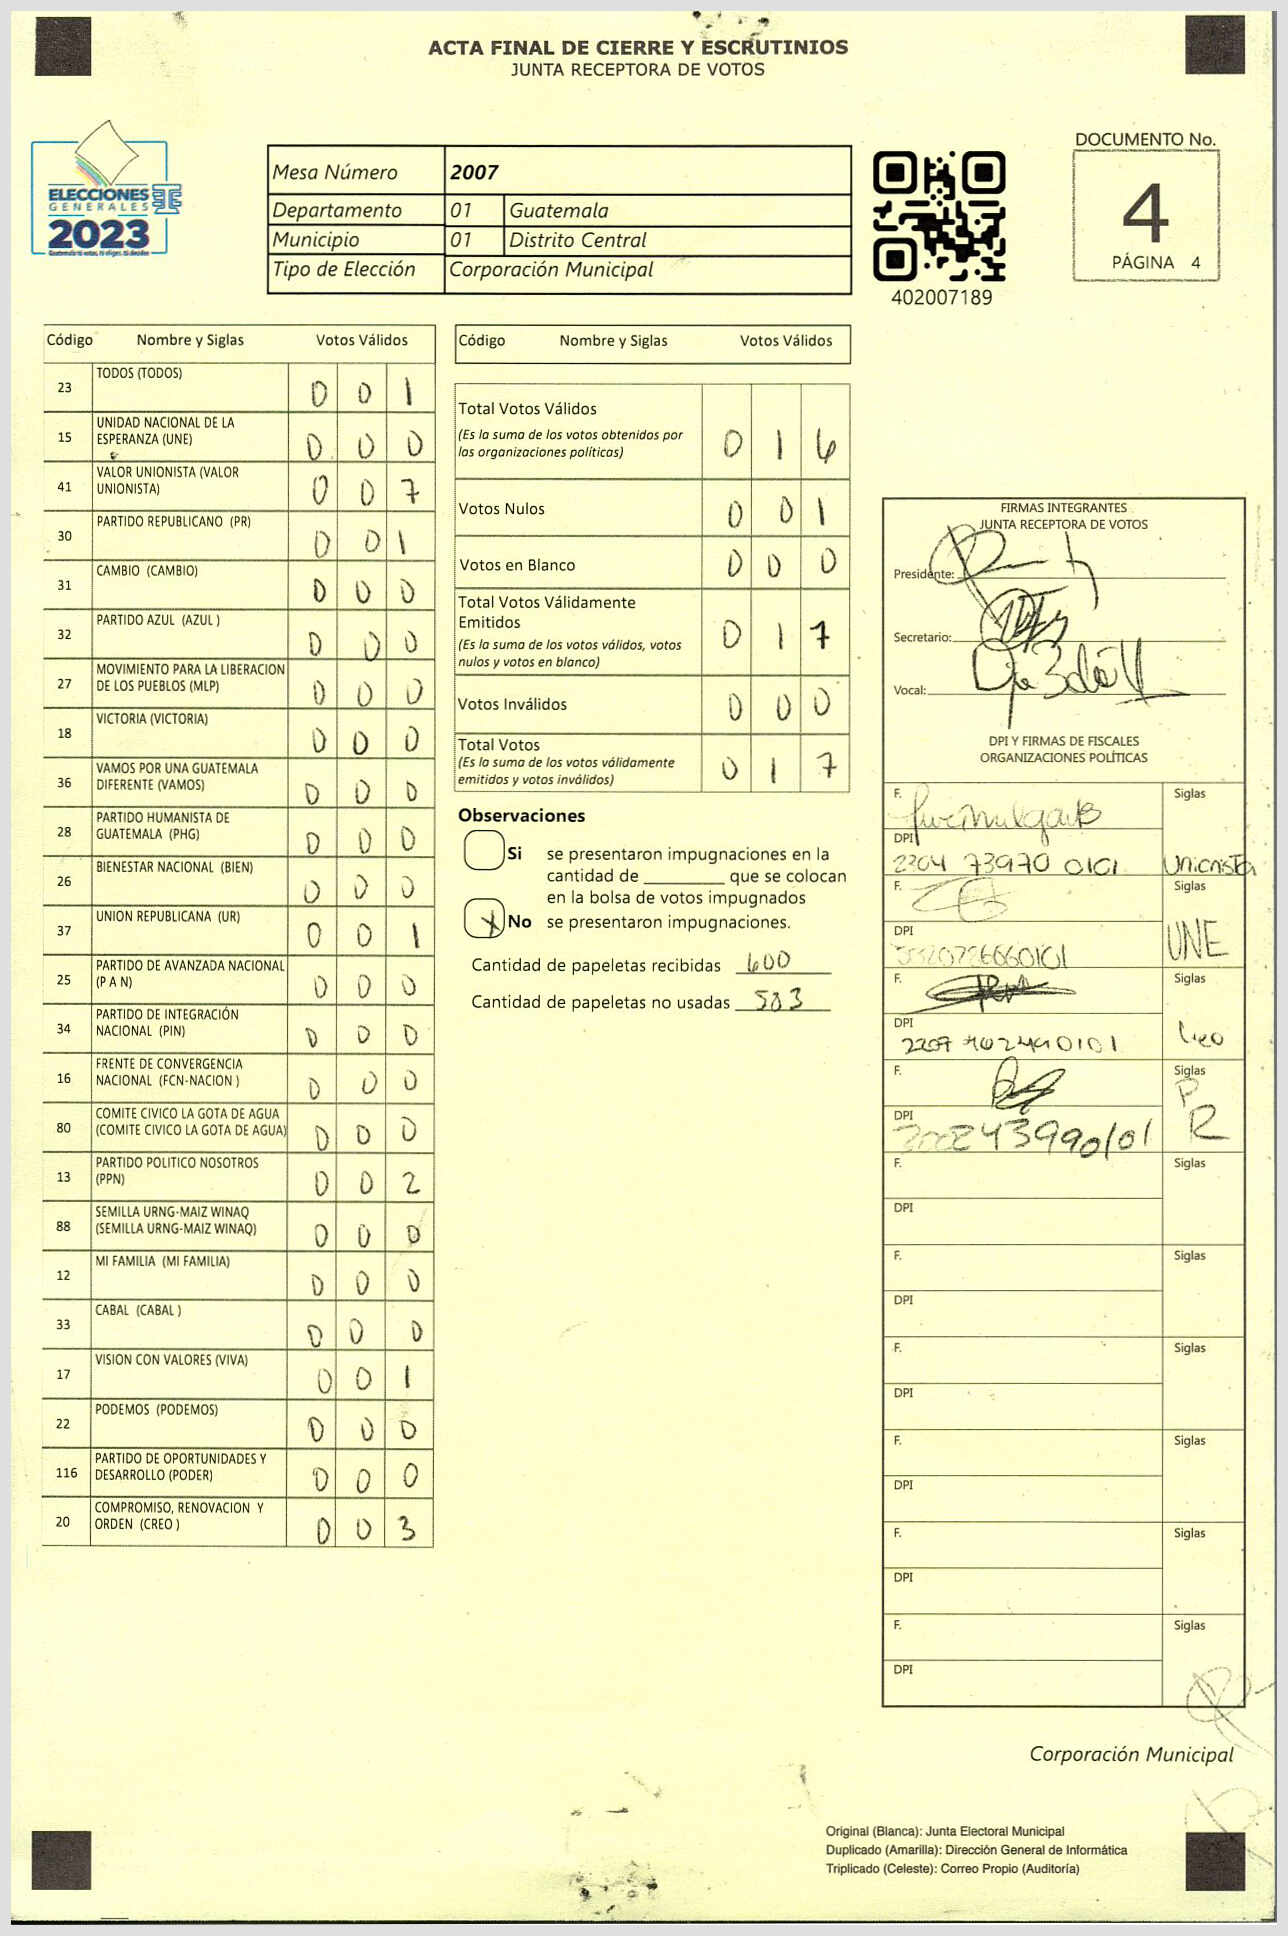 ACTA FINAL DE CIERRE Y ESCRUTINIOS
JUNTA RECEPTORA DE VOTOS
ELECCIONES
GENERALES
2023
Mesa Número 2007
Departamento 01 Guatemala
Municipio 01 Distrito Central
Tipo de Elección Corporación Municipal
402007189
DOCUMENTO No.
4
PÁGINA 4
Código Nombre y Siglas Votos Válidos
23 TODOS (TODOS) 0 0 1
15 UNIDAD NACIONAL DE LA
ESPERANZA (UNE) 0 0 0
41 VALOR UNIONISTA (VALOR
UNIONISTA) 0 0 7
30 PARTIDO REPUBLICANO (PR) 0 0 1
31 CAMBIO (CAMBIO) 0 0 0
32 PARTIDO AZUL (AZUL ) 0 0 0
27 MOVIMIENTO PARA LA LIBERACION
DE LOS PUEBLOS (MLP) 0 0 0
18 VICTORIA (VICTORIA) 0 0 0
36 VAMOS POR UNA GUATEMALA
DIFERENTE (VAMOS) 0 0 0
28 PARTIDO HUMANISTA DE
GUATEMALA (PHG) 0 0 0
26 BIENESTAR NACIONAL (BIEN) 0 0 0
37 UNION REPUBLICANA (UR) 0 0 1
25 PARTIDO DE AVANZADA NACIONAL
(P A N) 0 0 0
34 PARTIDO DE INTEGRACIÓN
NACIONAL (PIN) 0 0 0
16 FRENTE DE CONVERGENCIA
NACIONAL (FCN-NACION ) 0 0 0
80 COMITE CIVICO LA GOTA DE AGUA
(COMITE CIVICO LA GOTA DE AGUA) 0 0 0
13 PARTIDO POLITICO NOSOTROS
(PPN) 0 0 2
88 SEMILLA URNG-MAIZ WINAQ
(SEMILLA URNG-MAIZ WINAQ) 0 0 0
12 MI FAMILIA (MI FAMILIA) 0 0 0
33 CABAL (CABAL ) 0 0 0
17 VISION CON VALORES (VIVA) 0 0 1
22 PODEMOS (PODEMOS) 0 0 0
116 PARTIDO DE OPORTUNIDADES Y
DESARROLLO (PODER) 0 0 0
20 COMPROMISO, RENOVACION Y
ORDEN (CREO ) 0 0 3
Código Nombre y Siglas Votos Válidos
Total Votos Válidos
(Es la suma de los votos obtenidos por
las organizaciones políticas) 0 1 6
Votos Nulos 0 0 1
Votos en Blanco 0 0 0
Total Votos Válidamente
Emitidos
(Es la suma de los votos válidos, votos
nulos y votos en blanco) 0 1 7
Votos Inválidos 0 0 0
Total Votos
(Es la suma de los votos válidamente
emitidos y votos inválidos) 0 1 7
Observaciones
Si se presentaron impugnaciones en la
cantidad de ________ que se colocan
en la bolsa de votos impugnados
X No se presentaron impugnaciones.
Cantidad de papeletas recibidas 600
Cantidad de papeletas no usadas 583
FIRMAS INTEGRANTES
JUNTA RECEPTORA DE VOTOS
Presidente:
Secretario:
Vocal:
DPI Y FIRMAS DE FISCALES
ORGANIZACIONES POLÍTICAS
F. Siglas
DPI
2304 73970 0101 Unionista
F. Siglas
DPI
UNE
F. Siglas
DPI
F. Siglas
PR
DPI
F. Siglas
DPI
F. Siglas
DPI
F. Siglas
DPI
F. Siglas
DPI
F. Siglas
DPI
F. Siglas
DPI
Corporación Municipal
Original (Blanca): Junta Electoral Municipal
Duplicado (Amarilla): Dirección General de Informática
Triplicado (Celeste): Correo Propio (Auditoría)